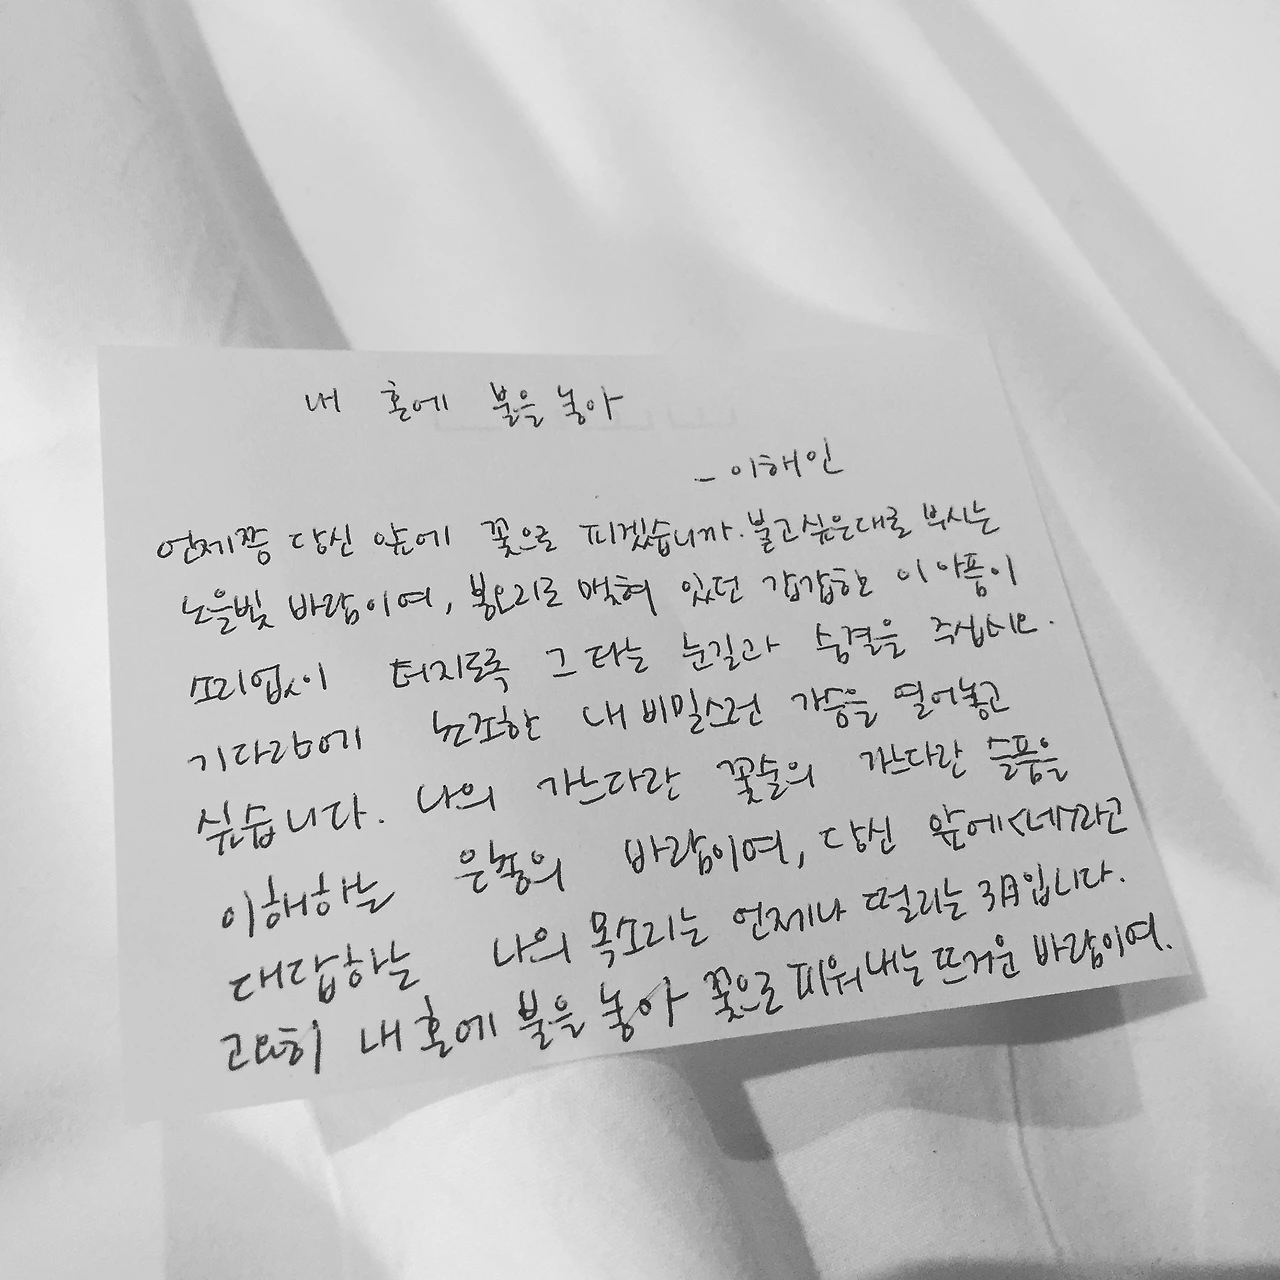 내 혼에 불을 놓아
- 이해인
언제쯤 당신 앞에 꽃으로 피겠습니까. 불고싶은대로 부시는
노을빛 바람이여, 봉오리로 맺혀 있던 갑갑한 이 아픔이
소리없이 터지도록 그 타는 눈길과 숨결을 주십시오.
기다림에 초조한 내 비밀스런 가슴을 열어놓고
싶습니다. 나의 가느다란 꽃술의 가느다란 슬픔을
이해하는 은총의 바람이여, 당신 앞에 <네>라고
대답하는 나의 목소리는 언제나 떨리는 3月입니다.
고요히 내 혼에 불을 놓아 꽃으로 피워내는 뜨거운 바람이여.